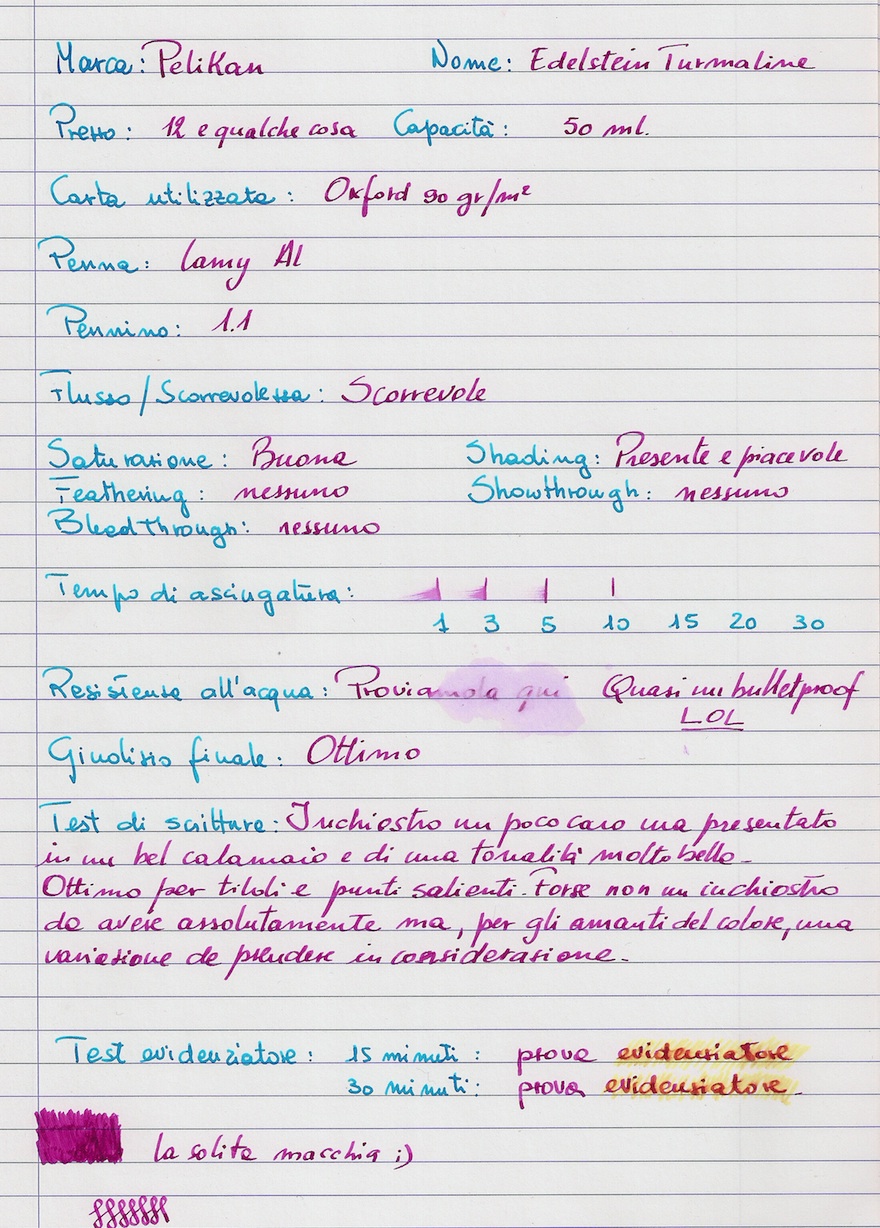 Marca: Pelikan Nome: Edelstein Turmaline
Prezzo: 12 e qualche cosa Capacità: 50 ml.
Carta utilizzata: Oxford 90 gr/m²
Penna: Lamy Al
Pennino: 1.1
Flusso/Scorrevolezza: Scorrevole
Saturazione: Buona Shading: Presente e piacevole
Feathering: nessuno Showthrough: nessuno
Bleedthrough: nessuno
Tempo di asciugatura:
1 3 5 10 15 20 30
Resistenza all'acqua: Proviamola qui Quasi un bulletproof
LOL
Giudizio finale: Ottimo
Test di scrittura: Inchiostro un poco caro ma presentato
in un bel calamaio e di una tonalità molto bella.
Ottimo per titoli e punti salienti. Forse non un inchiostro
da avere assolutamente ma, per gli amanti del colore, una
variazione da prendere in considerazione.
Test evidenziatore: 15 minuti: prova evidenziatore
30 minuti: prova evidenziatore.
la solita macchia ;)